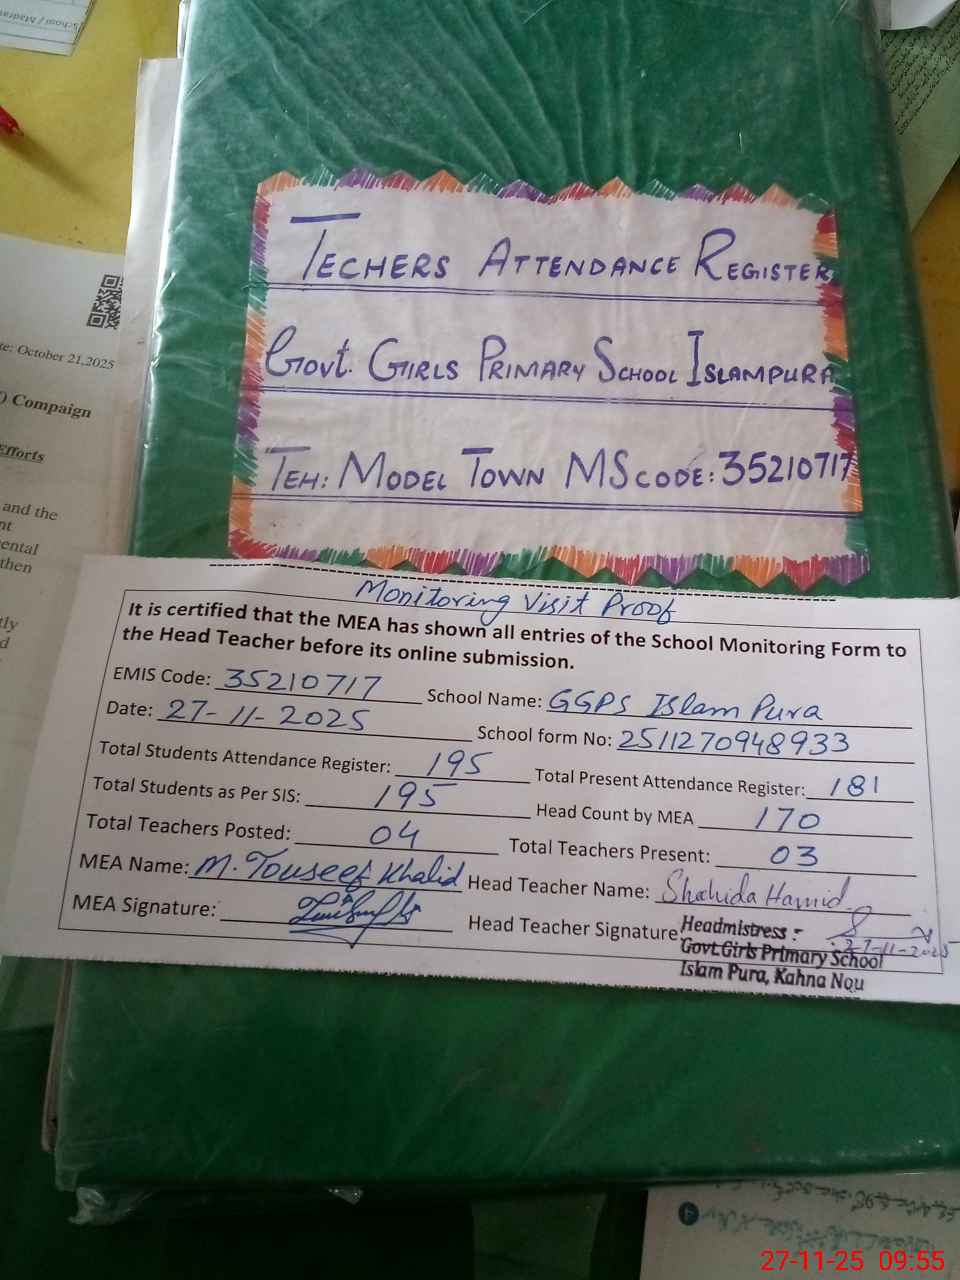 School / Madras
te: October 21,2025
) Compaign
Efforts
and the
nt
ental
then
tly
d
TECHERS ATTENDANCE REGISTER
Govt. GIRLS PRIMARY SCHOOL ISLAMPURA
TEH: MODEL TOWN MS CODE: 35210717
Monitoring Visit Proof
It is certified that the MEA has shown all entries of the School Monitoring Form to
the Head Teacher before its online submission.
EMIS Code: 35210717 School Name: GGPS Islam Pura
Date: 27-11-2025 School form No: 2511270948933
Total Students Attendance Register: 195 Total Present Attendance Register: 181
Total Students as Per SIS: 195 Head Count by MEA 170
Total Teachers Posted: 04 Total Teachers Present: 03
MEA Name: M. Touseef Khalid Head Teacher Name: Shahida Hamid
MEA Signature: Head Teacher Signature
Headmistress :-
27-11-2025
Govt.Girls Primary School
Islam Pura, Kahna Nou
4
27-11-25 09:55